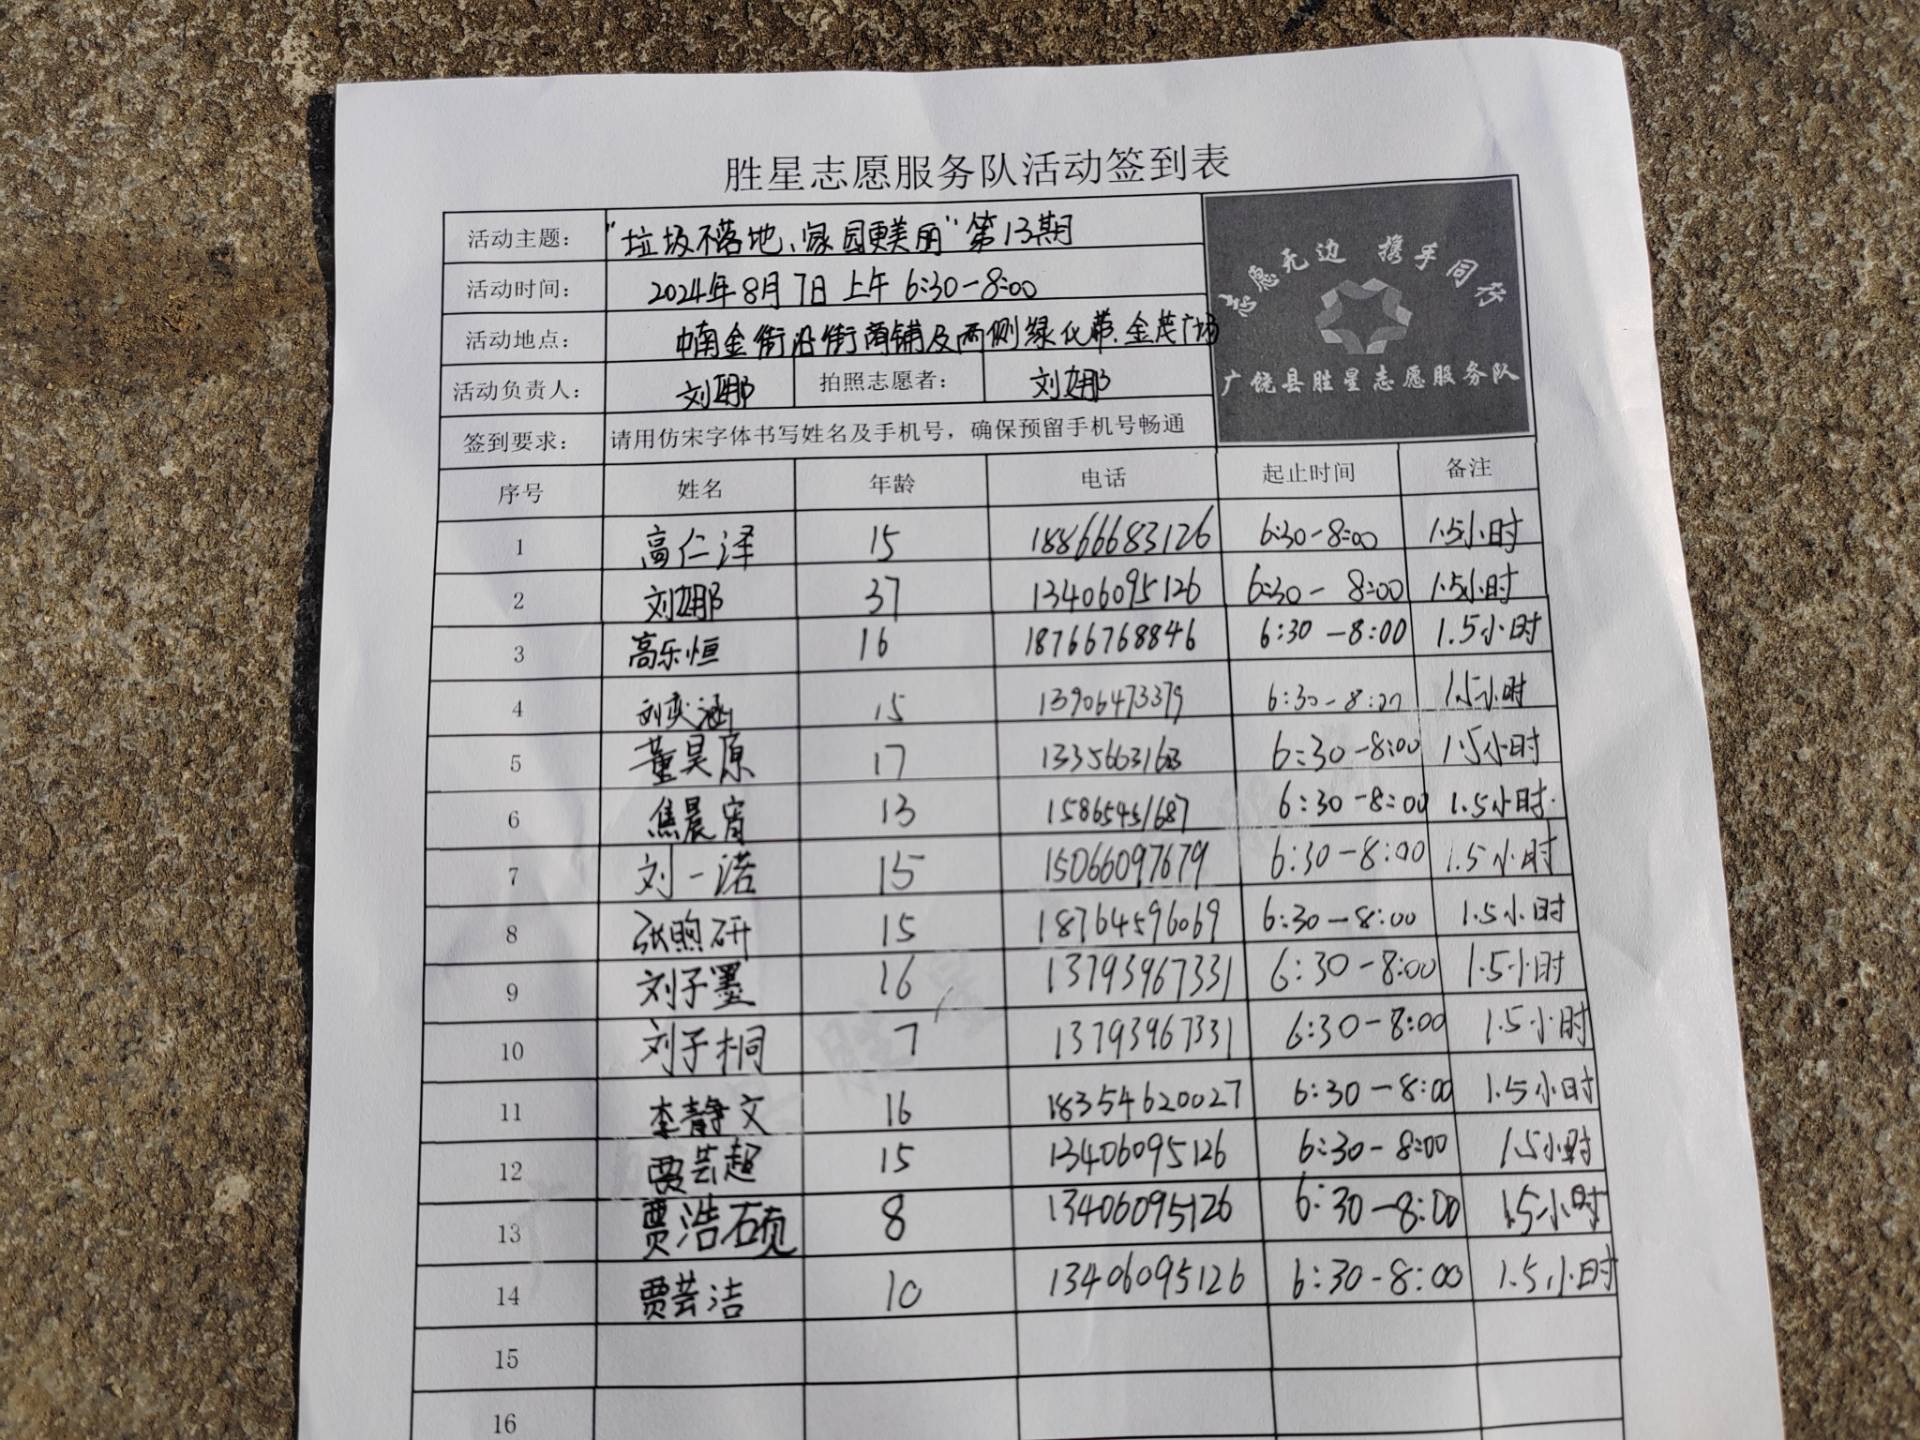 胜星志愿服务队活动签到表
活动主题： "垃圾不落地、家园更美丽"第13期
活动时间： 2024年8月7日上午6:30-8:00
活动地点： 中南金街沿街商铺及两侧绿化带、金茂广场
活动负责人： 刘娜 拍照志愿者： 刘娜
签到要求： 请用仿宋字体书写姓名及手机号，确保预留手机号畅通
志愿无边 携手同行
广饶县胜星志愿服务队
序号 姓名 年龄 电话 起止时间 备注
1 高仁泽 15 18866683126 6:30-8:00 1.5小时
2 刘娜 37 13406095126 6:30-8:00 1.5小时
3 高乐恒 16 18766768846 6:30-8:00 1.5小时
4 刘奕涵 15 13906473379 6:30-8:00 1.5小时
5 董昊原 17 13356631 6:30-8:00 1.5小时
6 焦晨宵 13 15865451687 6:30-8:00 1.5小时
7 刘一诺 15 15066097679 6:30-8:00 1.5小时
8 张煦研 15 18764596069 6:30-8:00 1.5小时
9 刘子墨 16 13793967331 6:30-8:00 1.5小时
10 刘子桐 7 13793967331 6:30-8:00 1.5小时
11 李静文 16 18354620027 6:30-8:00 1.5小时
12 贾芸超 15 13406095126 6:30-8:00 1.5小时
13 贾浩硕 8 13406095126 6:30-8:00 1.5小时
14 贾芸洁 10 13406095126 6:30-8:00 1.5小时
15
16